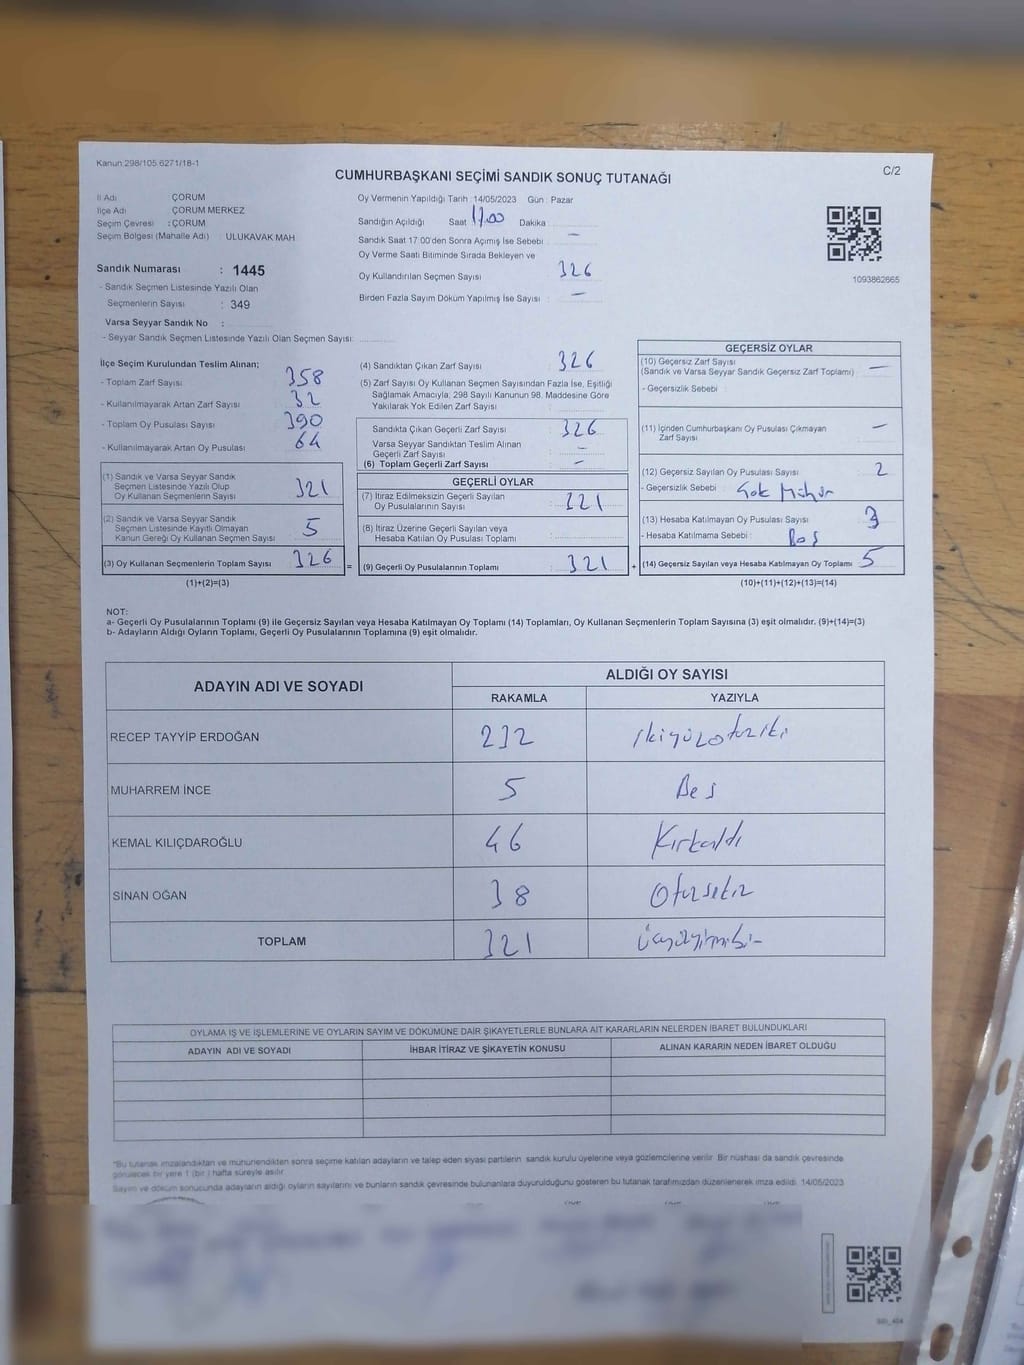 Kanun 298/105.6271/18-1
CUMHURBAŞKANI SEÇİMİ SANDIK SONUÇ TUTANAĞI
C/2
İl Adı ÇORUM
İlçe Adı ÇORUM MERKEZ
Seçim Çevresi : ÇORUM
Seçim Bölgesi (Mahalle Adı) : ULUKAVAK MAH
Sandık Numarası : 1445
- Sandık Seçmen Listesinde Yazılı Olan
Seçmenlerin Sayısı : 349
Varsa Seyyar Sandık No :
- Seyyar Sandık Seçmen Listesinde Yazılı Olan Seçmen Sayısı:
Oy Vermenin Yapıldığı Tarih :14/05/2023 Gün : Pazar
Sandığın Açıldığı Saat 17.00 Dakika
Sandık Saat 17:00'den Sonra Açımış İse Sebebi : –
Oy Verme Saati Bitiminde Sırada Bekleyen ve
Oy Kullandırılan Seçmen Sayısı : 326
Birden Fazla Sayım Döküm Yapılmış İse Sayısı : –
1093862665
İlçe Seçim Kurulundan Teslim Alınan;
- Toplam Zarf Sayısı : 358
- Kullanılmayarak Artan Zarf Sayısı : 32
- Toplam Oy Pusulası Sayısı : 390
- Kullanılmayarak Artan Oy Pusulası : 64
(1) Sandık ve Varsa Seyyar Sandık
Seçmen Listesinde Yazılı Olup
Oy Kullanan Seçmenlerin Sayısı : 321
(2) Sandık ve Varsa Seyyar Sandık
Seçmen Listesinde Kayıtlı Olmayan
Kanun Gereği Oy Kullanan Seçmen Sayısı : 5
(3) Oy Kullanan Seçmenlerin Toplam Sayısı : 326
(1)+(2)=(3)
(4) Sandıktan Çıkan Zarf Sayısı : 326
(5) Zarf Sayısı Oy Kullanan Seçmen Sayısından Fazla İse, Eşitliği
Sağlamak Amacıyla, 298 Sayılı Kanunun 98. Maddesine Göre
Yakılarak Yok Edilen Zarf Sayısı :
Sandıkta Çıkan Geçerli Zarf Sayısı : 326
Varsa Seyyar Sandıktan Teslim Alınan
Geçerli Zarf Sayısı : –
(6) Toplam Geçerli Zarf Sayısı : –
GEÇERLİ OYLAR
(7) İtiraz Edilmeksizin Geçerli Sayılan
Oy Pusulalarının Sayısı : 321
(8) İtiraz Üzerine Geçerli Sayılan veya
Hesaba Katılan Oy Pusulası Toplamı :
= (9) Geçerli Oy Pusulalarının Toplamı : 321 +
GEÇERSİZ OYLAR
(10) Geçersiz Zarf Sayısı
(Sandık ve Varsa Seyyar Sandık Geçersiz Zarf Toplamı) : –
- Geçersizlik Sebebi :
(11) İçinden Cumhurbaşkanı Oy Pusulası Çıkmayan
Zarf Sayısı : –
(12) Geçersiz Sayılan Oy Pusulası Sayısı : 2
- Geçersizlik Sebebi : Çok Mühür
(13) Hesaba Katılmayan Oy Pusulası Sayısı : 3
- Hesaba Katılmama Sebebi : Boş
(14) Geçersiz Sayılan veya Hesaba Katılmayan Oy Toplamı : 5
(10)+(11)+(12)+(13)=(14)
NOT:
a- Geçerli Oy Pusulalarının Toplamı (9) ile Geçersiz Sayılan veya Hesaba Katılmayan Oy Toplamı (14) Toplamları, Oy Kullanan Seçmenlerin Toplam Sayısına (3) eşit olmalıdır. (9)+(14)=(3)
b- Adayların Aldığı Oyların Toplamı, Geçerli Oy Pusulalarının Toplamına (9) eşit olmalıdır.
ADAYIN ADI VE SOYADI
ALDIĞI OY SAYISI
RAKAMLA YAZIYLA
RECEP TAYYİP ERDOĞAN 232 İkiyüzotuziki
MUHARREM İNCE 5 Beş
KEMAL KILIÇDAROĞLU 46 Kırkaltı
SİNAN OĞAN 38 Otuzsekiz
TOPLAM 321 Üçyüzyirmibir
OYLAMA İŞ VE İŞLEMLERİNE VE OYLARIN SAYIM VE DÖKÜMÜNE DAİR ŞİKAYETLERLE BUNLARA AİT KARARLARIN NELERDEN İBARET BULUNDUKLARI
ADAYIN ADI VE SOYADI İHBAR İTİRAZ VE ŞİKAYETİN KONUSU ALINAN KARARIN NEDEN İBARET OLDUĞU
*Bu tutanak imzalandıktan ve mühürlendikten sonra seçime katılan adayların ve talep eden siyasi partilerin sandık kurulu üyelerine veya gözlemcilerine verilir. Bir nüshası da sandık çevresinde
görülecek bir yere 1 (bir ) hafta süreyle asılır.
Sayım ve döküm sonucunda adayların aldığı oyların sayılarını ve bunların sandık çevresinde bulunanlara duyurulduğunu gösteren bu tutanak tarafımızdan düzenlenerek imza edildi. 14/05/2023